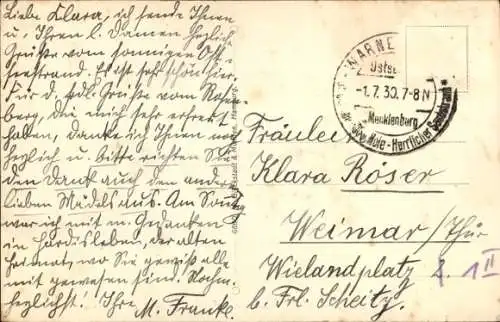 Liebe Klara, ich sende Ihnen
u. Ihren l. Damen herzliche
Grüße vom sonnigen Ost-
seestrand. Es ist sehr schön hier.
Für d. Grüße vom
die mich sehr erfreut
haben, danke ich Ihnen
herzlich u. bitte richten Sie
den Dank auch den andern
lieben Mädels aus. Am
war ich mit m. Gedanken
in Hardisleben, der alten
Heimat, wo Sie gewiß alle
mit gewesen sind. Nochm.
herzlichst! Ihre M. Franke.
WARNE
Ostsee
-1.7.30.7-8N
Mecklenburg
Mole - Herrlicher
Fräulein
Klara Röser
Weimar/Thür
Wielandplatz 2. 1 II
b. Frl. Scheitz.